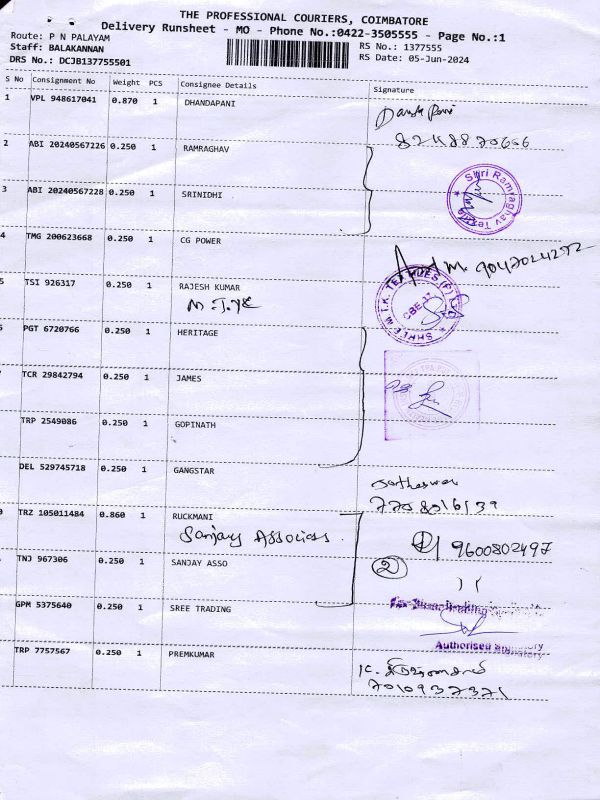 THE PROFESSIONAL COURIERS, COIMBATORE
Delivery Runsheet - MO - Phone No.:0422-3505555 - Page No.:1
Route: P N PALAYAM
RS No.: 1377555
Staff: BALAKANNAN
RS Date: 05-Jun-2024
DRS No.: DCJB137755501
S No Consignment No Weight PCS Consignee Details Signature
1 VPL 948617041 0.870 1 DHANDAPANI
2 ABI 20240567226 0.250 1 RAMRAGHAV
3 ABI 20240567228 0.250 1 SRINIDHI
Shri Ramraghav
4 TMG 200623668 0.250 1 CG POWER
9047024272
5 TSI 926317 0.250 1 RAJESH KUMAR
6 PGT 6720766 0.250 1 HERITAGE
TCR 29842794 0.250 1 JAMES
TRP 2549086 0.250 1 GOPINATH
DEL 529745718 0.250 1 GANGSTAR
TRZ 105011484 0.860 1 RUCKMANI
Sanjay Associas.
9600802497
TNJ 967306 0.250 1 SANJAY ASSO
2
GPM 5375640 0.250 1 SREE TRADING
Authorised Signatory
TRP 7757567 0.250 1 PREMKUMAR
7010937371